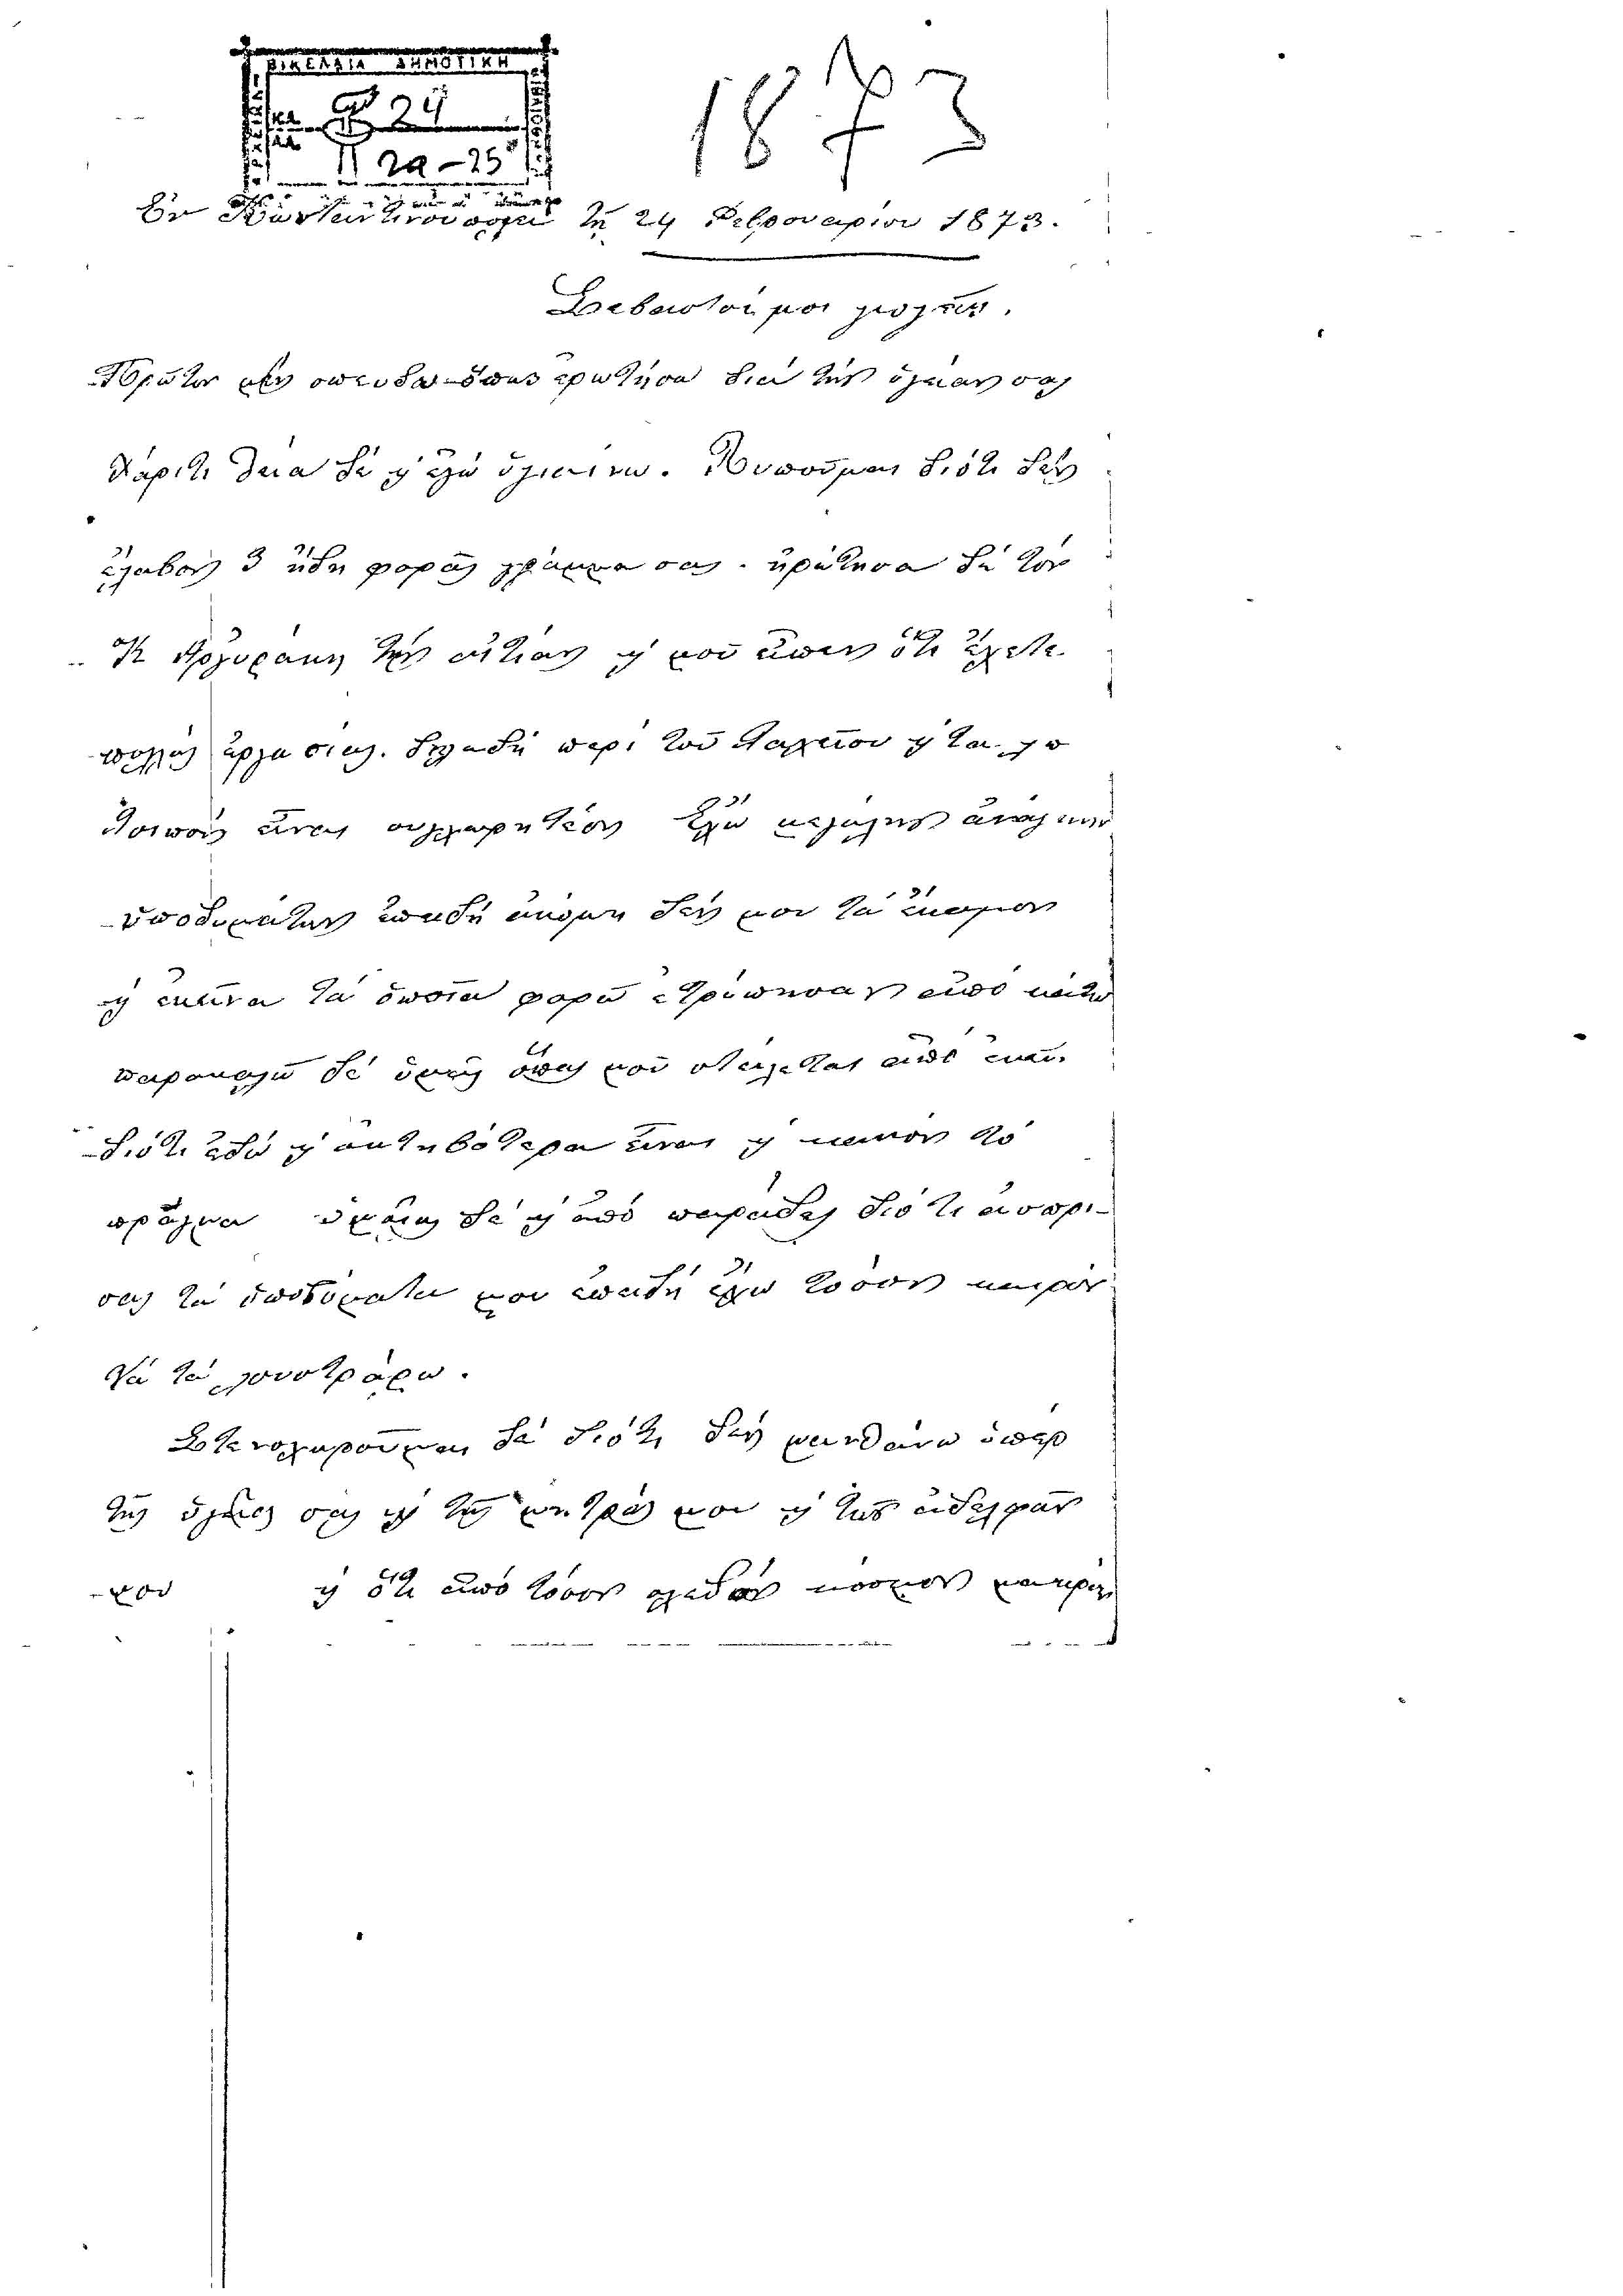 ΒΙΚΕΛΑΙΑ ΔΗΜΟΤΙΚΗ
24
2α-25
1873
Ἐν Κωνσταντινουπόλει τῇ 24 Φεβρουαρίου 1873.
Σεβαστοί μοι γονεῖς.
Πρῶτον μὲν σπεύδω ὅπως ἐρωτήσω διὰ τὴν ὑγείαν σας
χάριτι θεία δὲ κ ἐγὼ ὑγιαίνω. Λυποῦμαι διότι δὲν
ἔλαβον 3 ἤδη φορὰς γράμμα σας. ἠρώτησα δὲ τὸν
Κ τὴν αἰτίαν κ μοῦ εἶπεν ὅτι ἔχετε
πολλὰς ἐργασίας. δηλαδὴ περὶ τοῦ κ τα
λοιπὸν εἶναι συγχωρητέον ἔχω μεγάλην ἀνάγκην
ὑποδημάτων ἐπειδὴ ἀκόμη δὲν μοι τὰ ἔκαμον
κ ἐκεῖνα τὰ ὁποῖα φορῶ ἐτρύπησαν ἀπὸ κάτω
παρακαλῶ δὲ ὑμᾶς ὅπως μοῦ στείλητε ἀπὸ ἐκεῖ.
διότι ἐδῶ κ ἀκριβότερα εἶναι κ κακὸν τὸ
πρᾶγμα ὑμᾶς δὲ κ ἀπὸ παράδες διότι
τὰ ὑποδήματά μου ἐπειδὴ ἔχω τόσον καιρὸν
νὰ τὰ λουστράρω.
Στενοχωροῦμαι δὲ διότι δὲν μανθάνω ὑπὲρ
τῆς ὑγείας σας κ τῆς μητρός μου κ τῶν ἀδελφῶν
μου κ ὅτι ἀπὸ τόσον σχεδὸν κόσμον